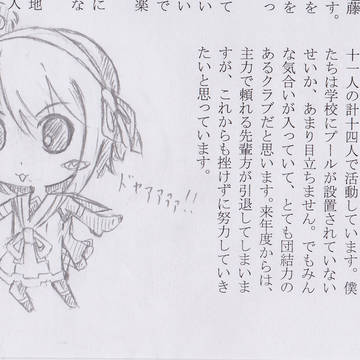 十一人の計十四人で活動しています。僕
たちは学校にプールが設置されていない
せいか、あまり目立ちません。でもみん
な気合いが入っていて、とても団結力の
あるクラブだと思います。来年度からは、
主力で頼れる先輩方が引退してしまいま
すが、これからも挫けずに努力していき
たいと思っています。
ドヤァァァァ!!
藤
を
を
っ
す。
て
い
で
楽
に
な
地
人